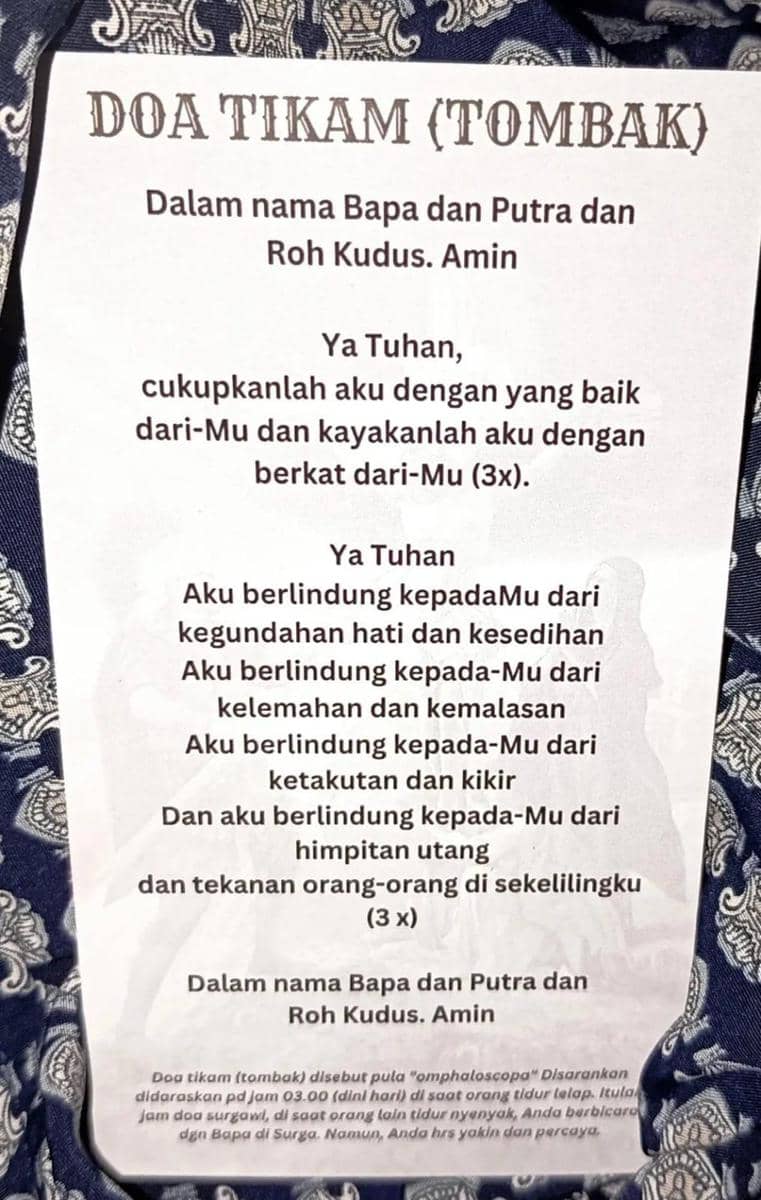 DOA TIKAM (TOMBAK)
Dalam nama Bapa dan Putra dan
Roh Kudus. Amin
Ya Tuhan,
cukupkanlah aku dengan yang baik
dari-Mu dan kayakanlah aku dengan
berkat dari-Mu (3x).
Ya Tuhan
Aku berlindung kepadaMu dari
kegundahan hati dan kesedihan
Aku berlindung kepada-Mu dari
kelemahan dan kemalasan
Aku berlindung kepada-Mu dari
ketakutan dan kikir
Dan aku berlindung kepada-Mu dari
himpitan utang
dan tekanan orang-orang di sekelilingku
(3 x)
Dalam nama Bapa dan Putra dan
Roh Kudus. Amin
Doa tikam (tombak) disebut pula "omphaloscopa" Disarankan
didaraskan pd jam 03.00 (dini hari) di saat orang tidur lelap. Itula
jam doa surgawi, di saat orang lain tidur nyenyak, Anda berbicara
dgn Bapa di Surga. Namun, Anda hrs yakin dan percaya.